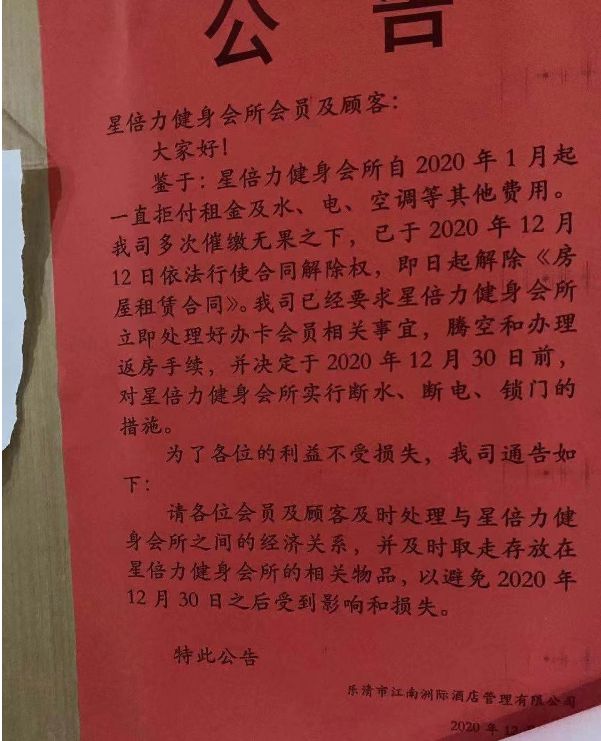 公告
星倍力健身会所会员及顾客：
大家好！
鉴于：星倍力健身会所自 2020 年 1 月起
一直拒付租金及水、电、空调等其他费用。
我司多次催缴无果之下，已于 2020 年 12 月
12 日依法行使合同解除权，即日起解除《房
屋租赁合同》。我司已经要求星倍力健身会所
立即处理好办卡会员相关事宜，腾空和办理
返房手续，并决定于 2020 年 12 月 30 日前，
对星倍力健身会所实行断水、断电、锁门的
措施。
为了各位的利益不受损失，我司通告如
下：
请各位会员及顾客及时处理与星倍力健
身会所之间的经济关系，并及时取走存放在
星倍力健身会所的相关物品，以避免 2020 年
12 月 30 日之后受到影响和损失。
特此公告
乐清市江南洲际酒店管理有限公司
2020 年 12